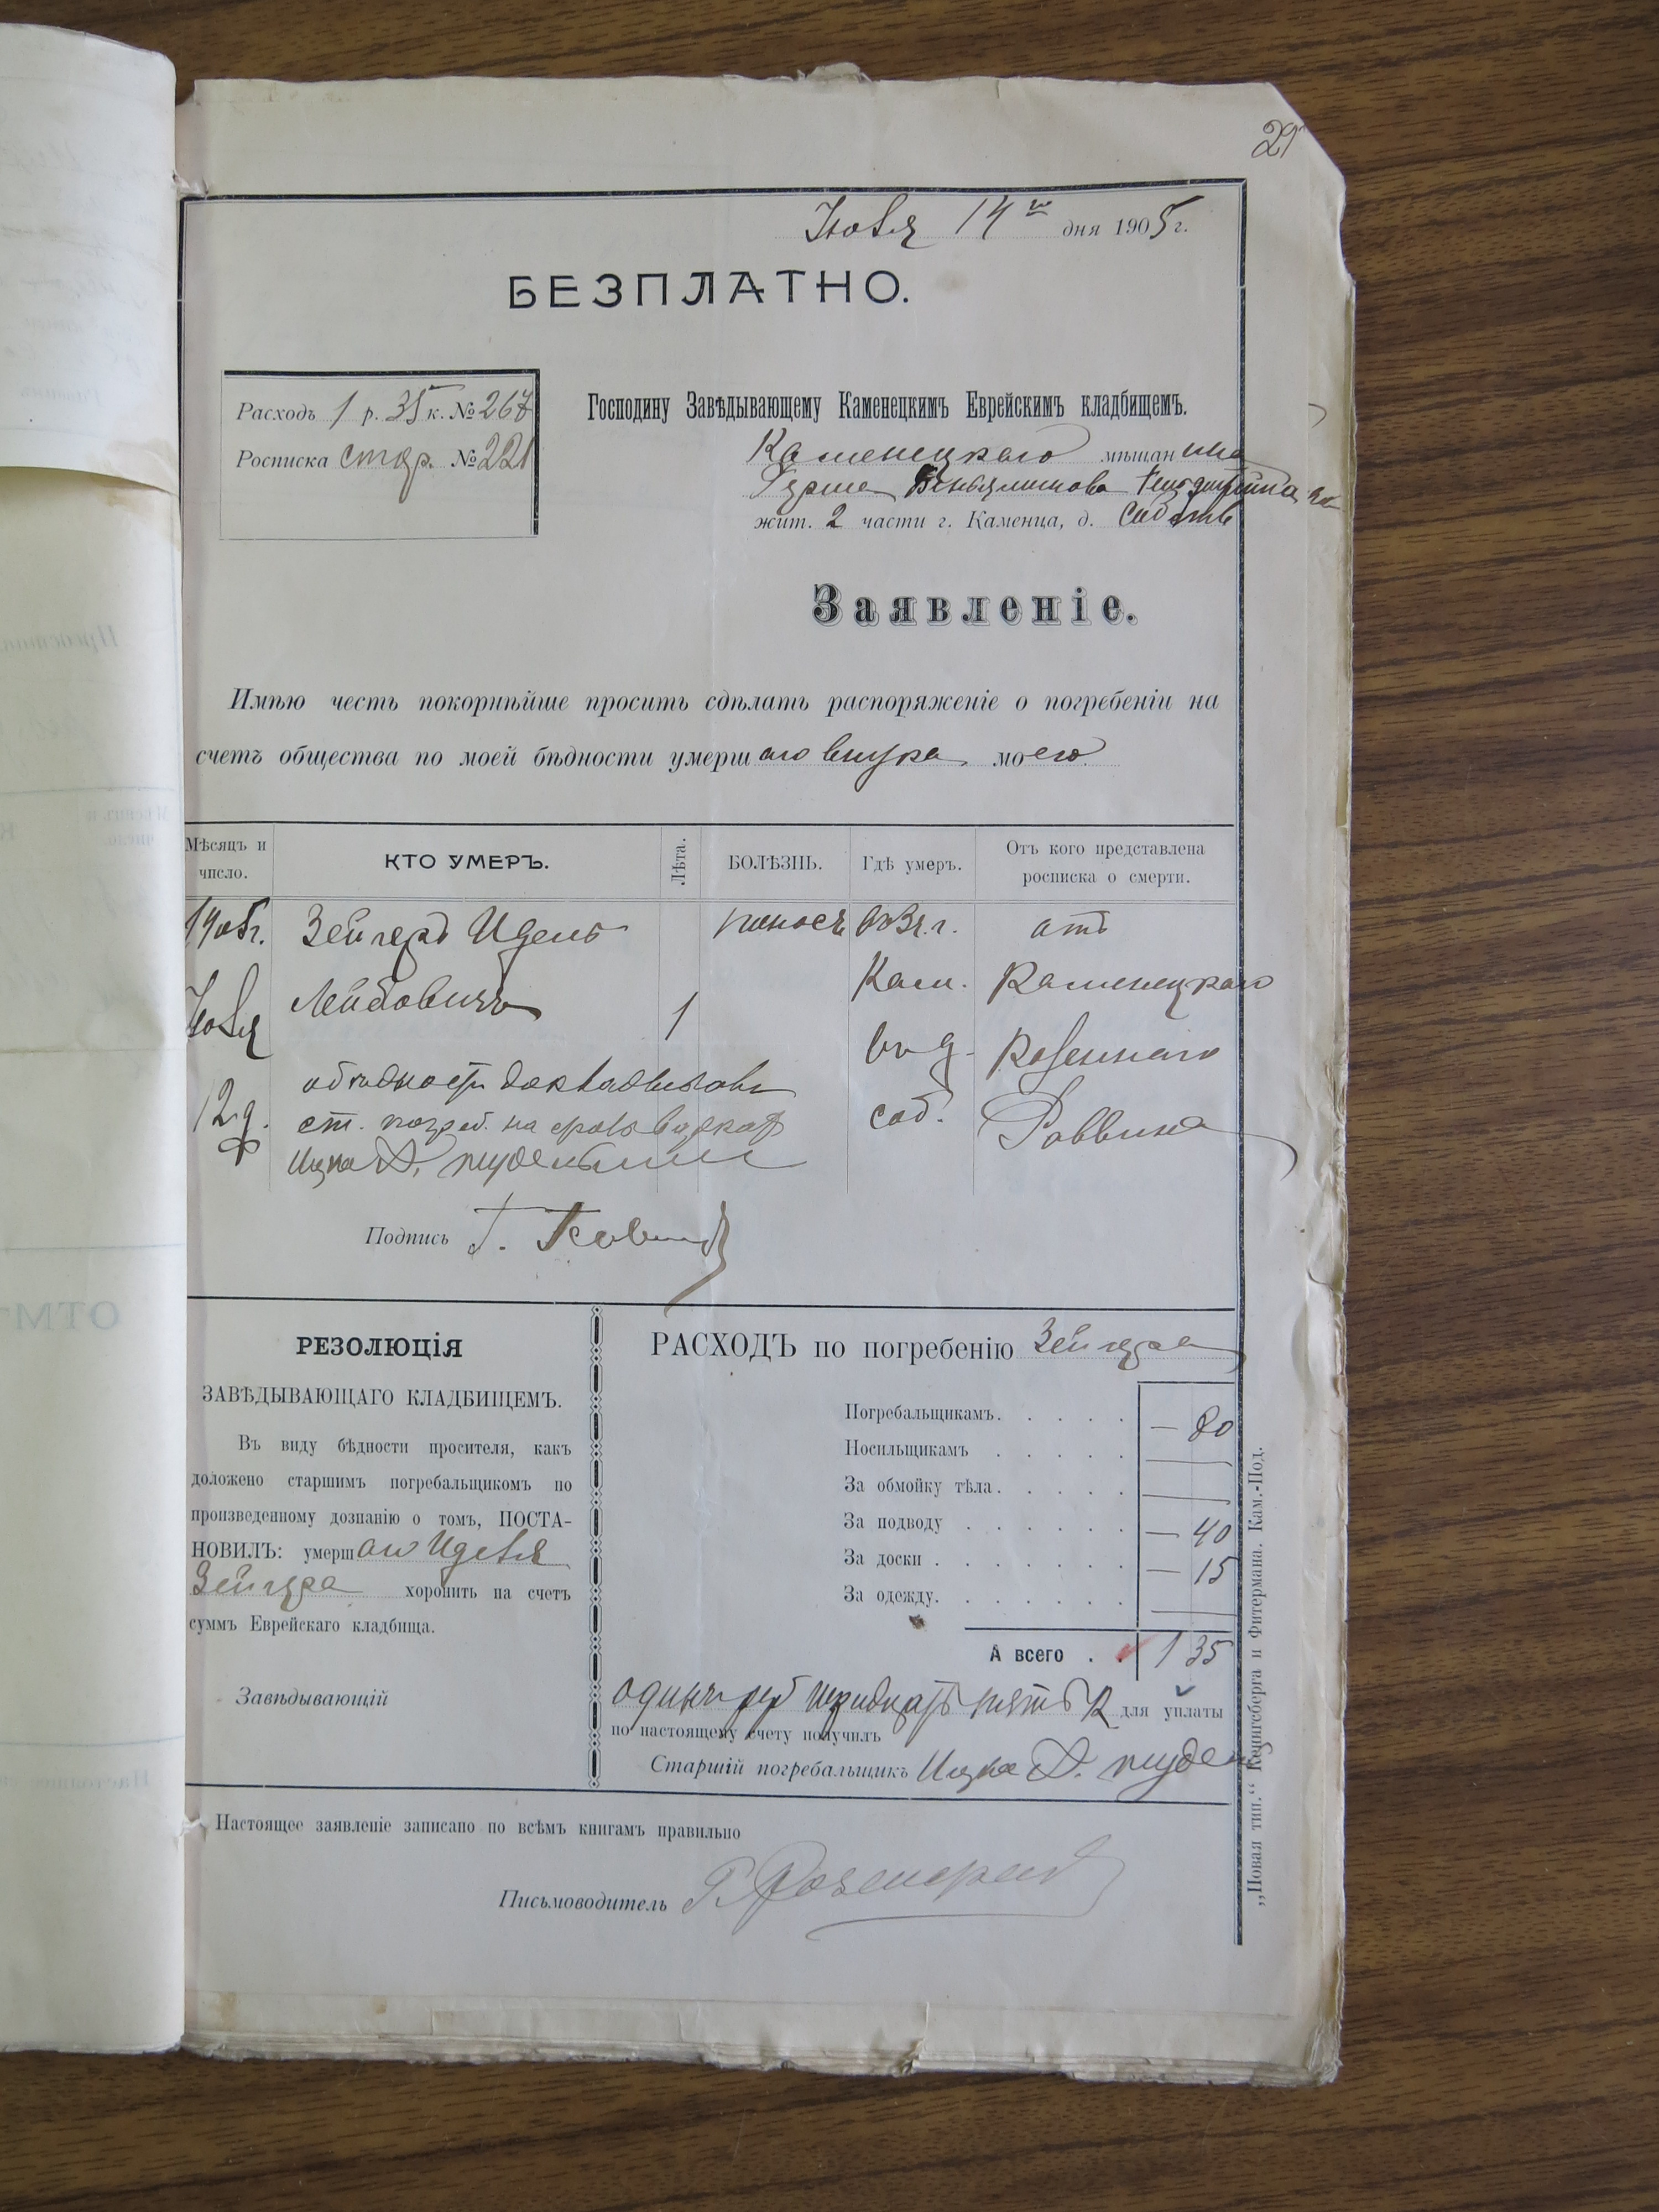 29
Іюля 14го дня 1905 г.
БЕЗПЛАТНО.
Расходъ 1 р. 35 к. № 267
Росписка стар. № 221
Господину Завѣдывающему Каменецкимъ Еврейскимъ кладбищемъ.
Каменецкаго мѣщанина
Герша Веньяминова
жит. 2 части г. Каменца, д. собств
Заявленіе.
Имѣю честь покорнѣйше просить сдѣлать распоряженіе о погребеніи на
счетъ общества по моей бѣдности умершаго внука моего
Мѣсяцъ и число. КТО УМЕРЪ. Лѣта. БОЛѢЗНЬ. Гдѣ умеръ. Отъ кого представлена росписка о смерти.
1905г. Зейгерд Идель поносъ въ г. отъ
Іюля Лейбовичъ 1 Кам. Каменецкаго
12 д. въ д. Казеннаго
соб. Раввина
о бѣдности докладывалъ
ст. погреб.
Ицко
Подпись Г.
РЕЗОЛЮЦІЯ
ЗАВѢДЫВАЮЩАГО КЛАДБИЩЕМЪ.
Въ виду бѣдности просителя, какъ
доложено старшимъ погребальщикомъ по
произведенному дознанію о томъ, ПОСТА-
НОВИЛЪ: умершаго Иделя
Зейгера хоронить на счетъ
суммъ Еврейскаго кладбища.
Завѣдывающій
РАСХОДЪ по погребенію Зейгера
Погребальщикамъ. . . . . — 80
Носильщикамъ . . . . . —
За обмойку тѣла. . . . . —
За подводу . . . . . . — 40
За доски . . . . . . . — 15
За одежду. . . . . . . —
А всего . . 1 35
одинъ руб тридцать пять к для уплаты
по настоящему счету получилъ
Старшій погребальщикъ Ицко
Настоящее заявленіе записано по всѣмъ книгамъ правильно
Письмоводитель
„Новая тип.“ Кенигсберга и Фитермана. Кам.-Под.